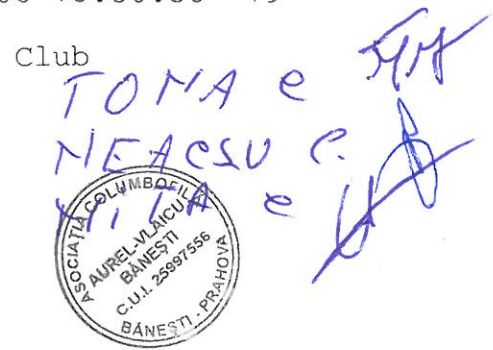 Club
TOMA C
NEACSU C.
MITA C
ASOCIAȚIA COLUMBOFILĂ
AUREL-VLAICU
BĂNEȘTI
C.U.I. 25997556
BĂNEȘTI - PRAHOVA